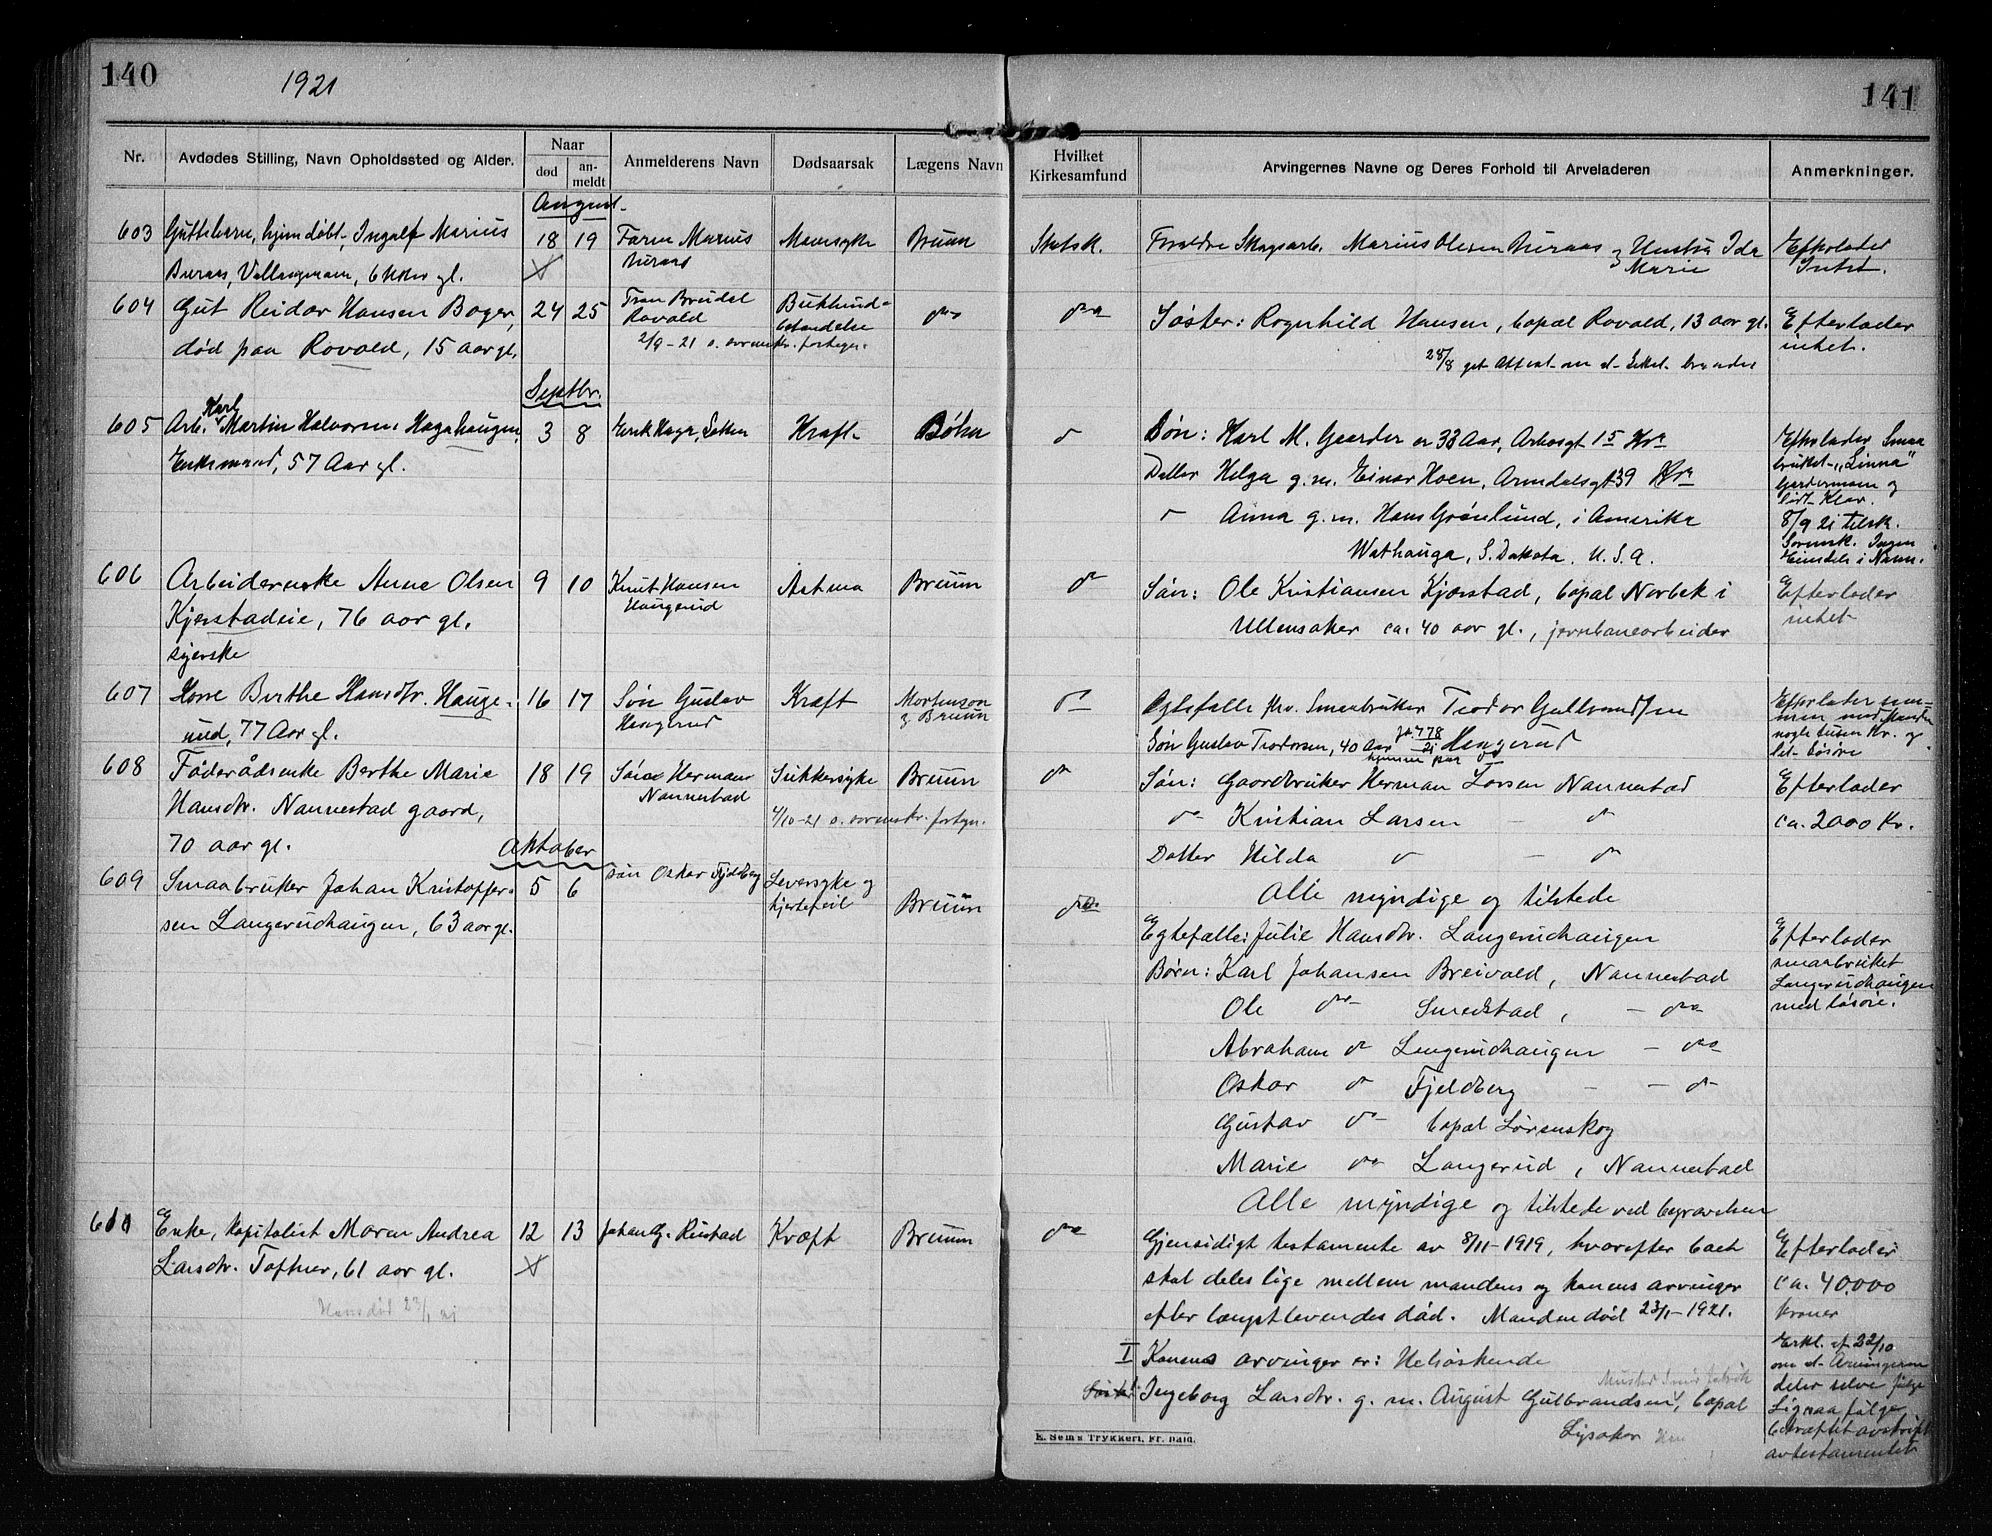 140
1921
141
Nr.
Avdødes Stilling, Navn Opholdssted og Alder.
Naar
død
an-
meldt
Anmelderens Navn
Dødsaarsak
Lægens Navn
Hvilket
Kirkesamfund
Arvingernes Navne og Deres Forhold til Arveladeren
Anmerkninger.
August
603 Guttebarn, hjemdøbt, Ingalf Marius 18 19 Faren Marius Mavesyke Bruun Statsk. Foreldre Skogsarb. Marius Olsen Buraas og Hustru Ida Efterlader
Buraas, 6 Uker gl. Buraas Marie Intet.
604 Gut Reidar Hansen Bager, 24 25 Fran Breidal Bukhind- do Søster: Ragnhild Hansen, bopæl Rovald, 13 aar gl. Efterlader
død paa Rovold, 15 aar gl. Rovald betændelse intet.
2/9-21 o. formskr. 28/8 get Attest om
Septbr.
605 Arb. Karl Martin Halvorsen Hagahaugen, 3 8 Erik Haga, Kræft Bøhn do Søn: Karl M. Gaarder er 33 Aar, Arbosgt 15 Kra Efterlader Smaa
Enkemand, 57 Aar gl. Datter Helga g. m. Einar Hoen, Arendalsgt 39 Kra bruket "Linna"
Gardermoen og
do Anna g. m. Hans Grønlund, i Amerika lidt Klær.
8/9 21 tilsk.
Wathauga, S. Dakota. U. S. A. Sorensk. Ingen
Eiendele i Nann.
606 Arbeiderenke Anne Olsen 9 10 Knut Hansen Astma Bruun do Søn: Ole Kristiansen Kjærstad, bopæl Norbek i Efterlader
Kjerstadeie, 76 aar gl. Haugerud Ullensaker ca. 40 aar gl., jernbanearbeider intet
syerske
607 Kone Berthe Hansdtr. Hauge- 16 17 Søn Gustav Kræft Mortenson do Egtefælle fhv. Smaabruker Teodor Gulbrandsen Efterlater sam-
rud, 77 Aar gl. Haugerud & Bruun Søn Gustav Teodorsen, 40 Aar Haugerud men med Manden
hjemme paa nogle tusen Kr. og
lit løsøre
608 Føderådsenke Berthe Marie 18 19 Søn Herman Sukkersyke Bruun do Søn: Gaardbruker Herman Larsen Nannestad Efterlader
Hansdtr. Nannestad gaard, Nannestad 4/10-21 o. formskr. do Kristian Larsen - do ca. 2000 Kr.
70 aar gl. Datter Hilda do - do
Oktober
Alle myndige og tilstede
609 Smaabruker Johan Kristoffer- 5 6 søn Oskar Fjeldberg Leversyke og Bruun do
sen Langerudhaugen, 63 aar gl. hjertefeil
Egtefælle: Julie Hansdtr. Langerudhaugen Efterlader
Børn: Karl Johansen Breivold, Nannestad smaabruket
Langerudhaugen
Ole do Smedstad, - do med løsøre.
Abraham do Langerudhaugen - do
Oskar do Fjeldberg - - do
Gustav do bopæl Lørenskog
Marie do Langerud, Nannestad
Alle myndige og tilstede ved begravelsen
610 Enke, kapitalist Maren Andrea 12 13 Johan G. Ristad Kræft Bruun do Gjensidigt testamente av 8/11-1919, hvorefter boet Efterlader
Larsdtr. Toftner, 61 aar gl. skal deles lige mellem mandens og konens arvinger ca. 40.000
efter længstlevendes død. Manden død 23/1-1921. kroner
I Konens arvinger er: Helsøskende Erkl. af 22/10
om at Arvingerne
Ingeborg Larsdtr. g. m. August Gulbrandsen, bopæl deler selve
Lysaker bekræftet avskrift
av testamentet
E. Sems Trykkeri, Fr.hald.